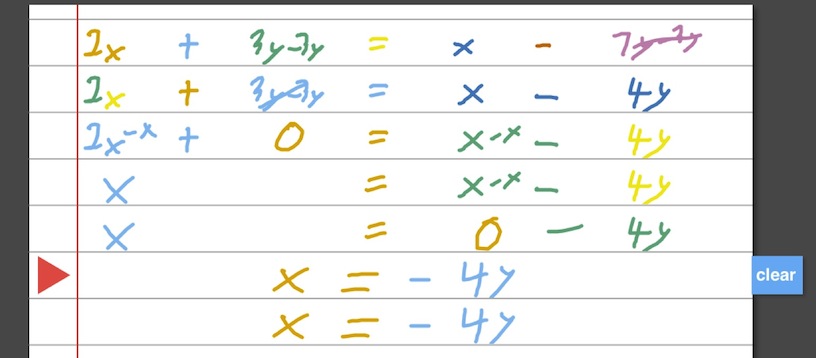 2x + 3y-3y = x - 7y-3y
2x + 3y-3y = x - 4y
2x-x + 0 = x-x - 4y
x = x-x - 4y
x = 0 - 4y
x = - 4y
clear
x = - 4y